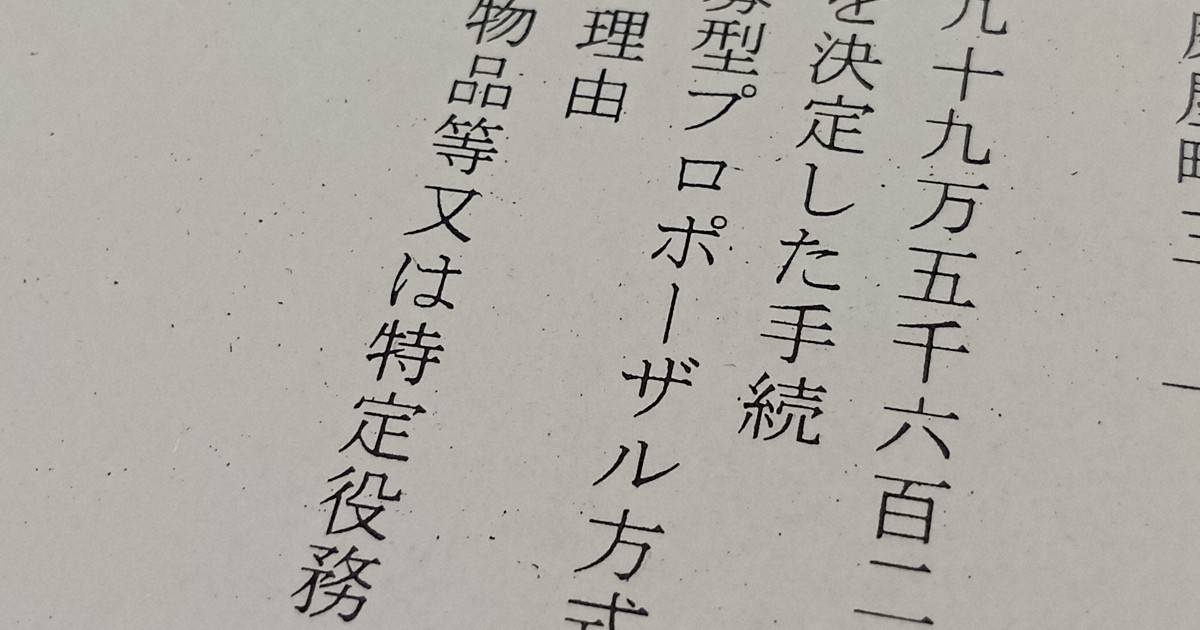 屋町三
九十九万五千六百二
を決定した手続
募型プロポーザル方式
理由
物品等又は特定役務